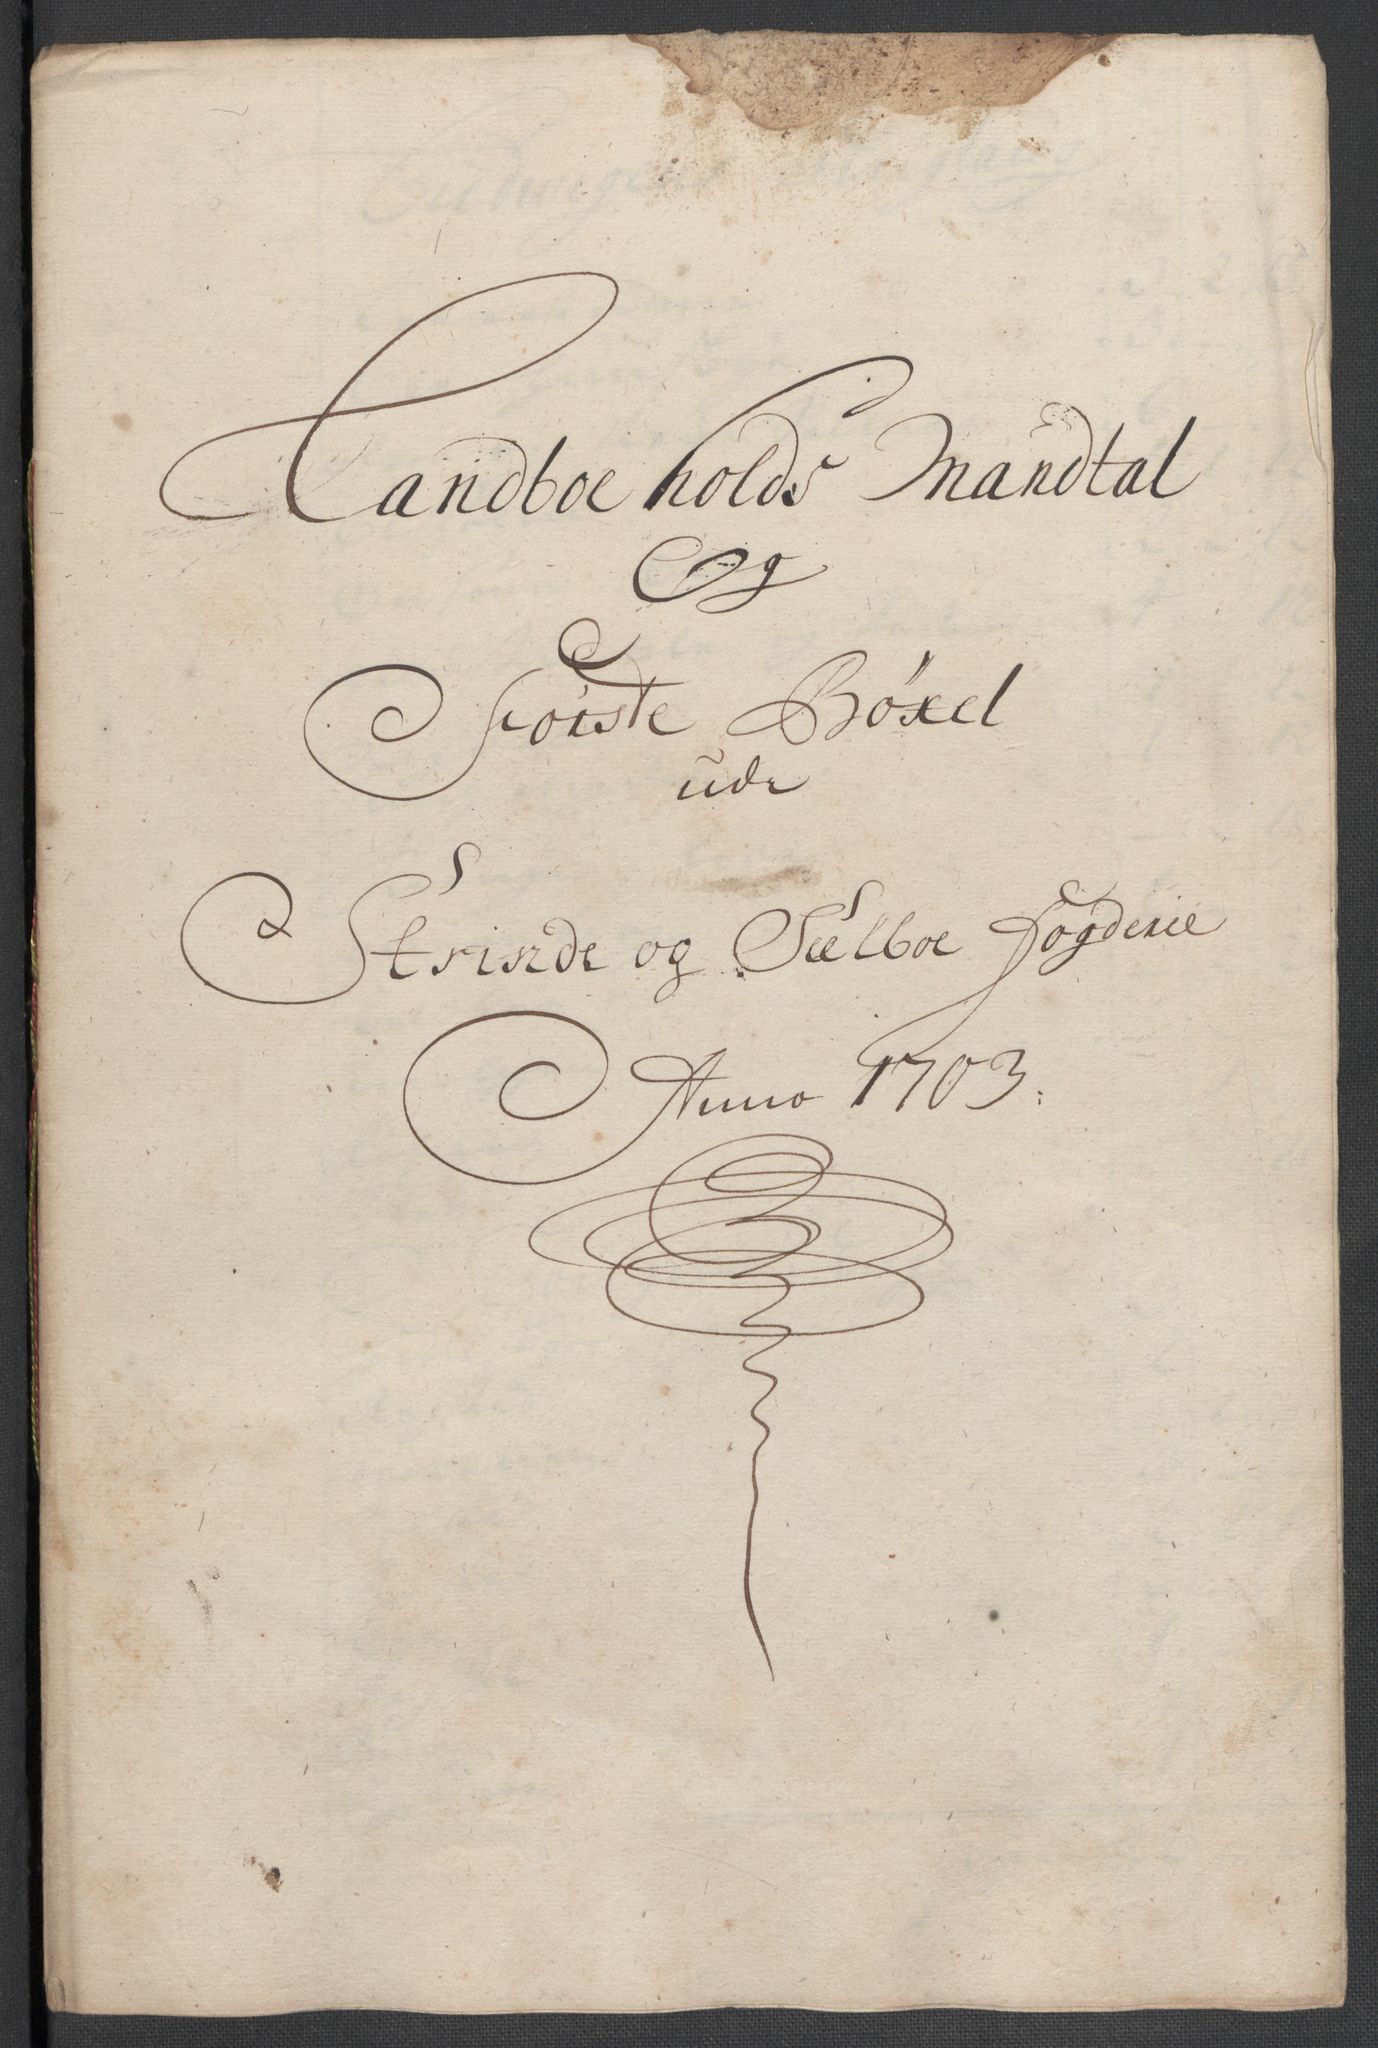 Landboeholds Mandtal
Og
Første Bøxel
udi
Strinde og Sælboe Fogderie
Anno 1703.